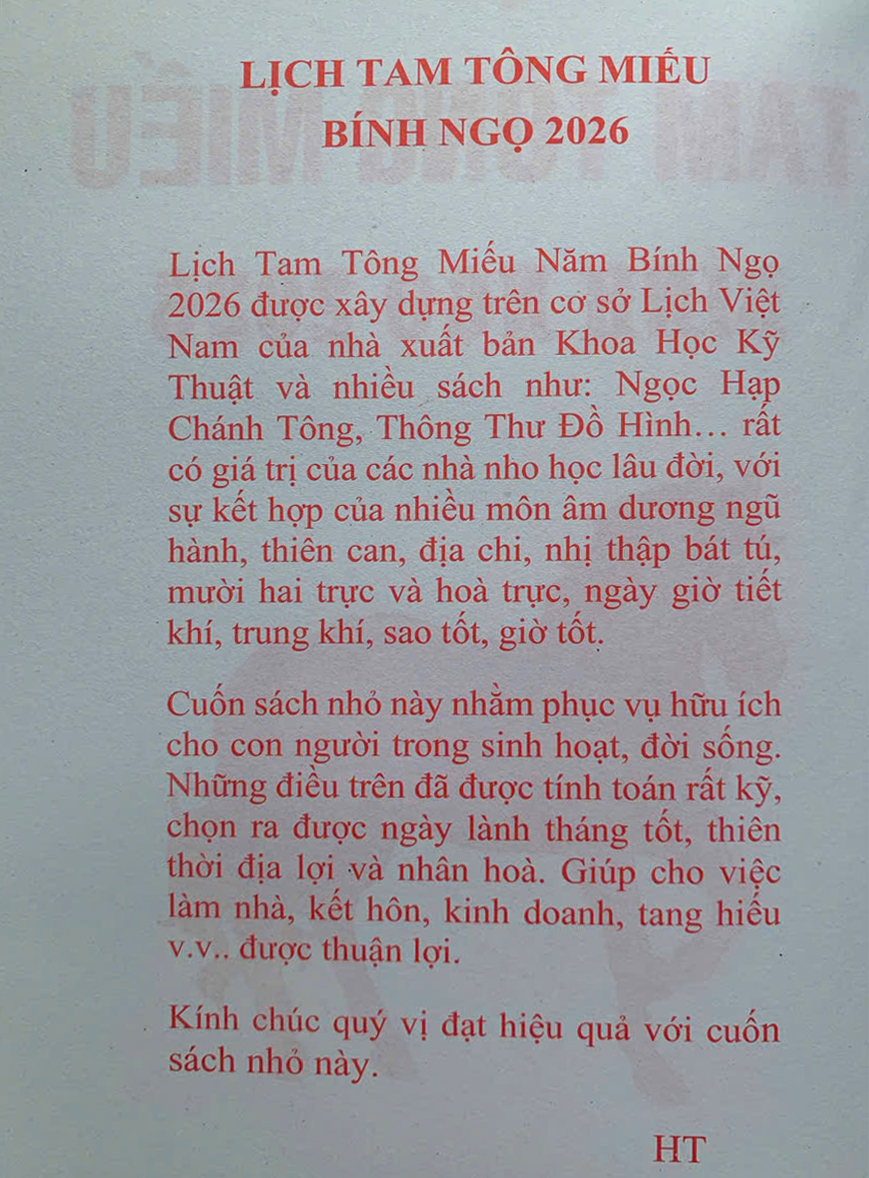 LỊCH TAM TÔNG MIẾU
BÍNH NGỌ 2026
Lịch Tam Tông Miếu Năm Bính Ngọ
2026 được xây dựng trên cơ sở Lịch Việt
Nam của nhà xuất bản Khoa Học Kỹ
Thuật và nhiều sách như: Ngọc Hạp
Chánh Tông, Thông Thư Đồ Hình... rất
có giá trị của các nhà nho học lâu đời, với
sự kết hợp của nhiều môn âm dương ngũ
hành, thiên can, địa chi, nhị thập bát tú,
mười hai trực và hoà trực, ngày giờ tiết
khí, trung khí, sao tốt, giờ tốt.
Cuốn sách nhỏ này nhằm phục vụ hữu ích
cho con người trong sinh hoạt, đời sống.
Những điều trên đã được tính toán rất kỹ,
chọn ra được ngày lành tháng tốt, thiên
thời địa lợi và nhân hoà. Giúp cho việc
làm nhà, kết hôn, kinh doanh, tang hiếu
v.v.. được thuận lợi.
Kính chúc quý vị đạt hiệu quả với cuốn
sách nhỏ này.
HT